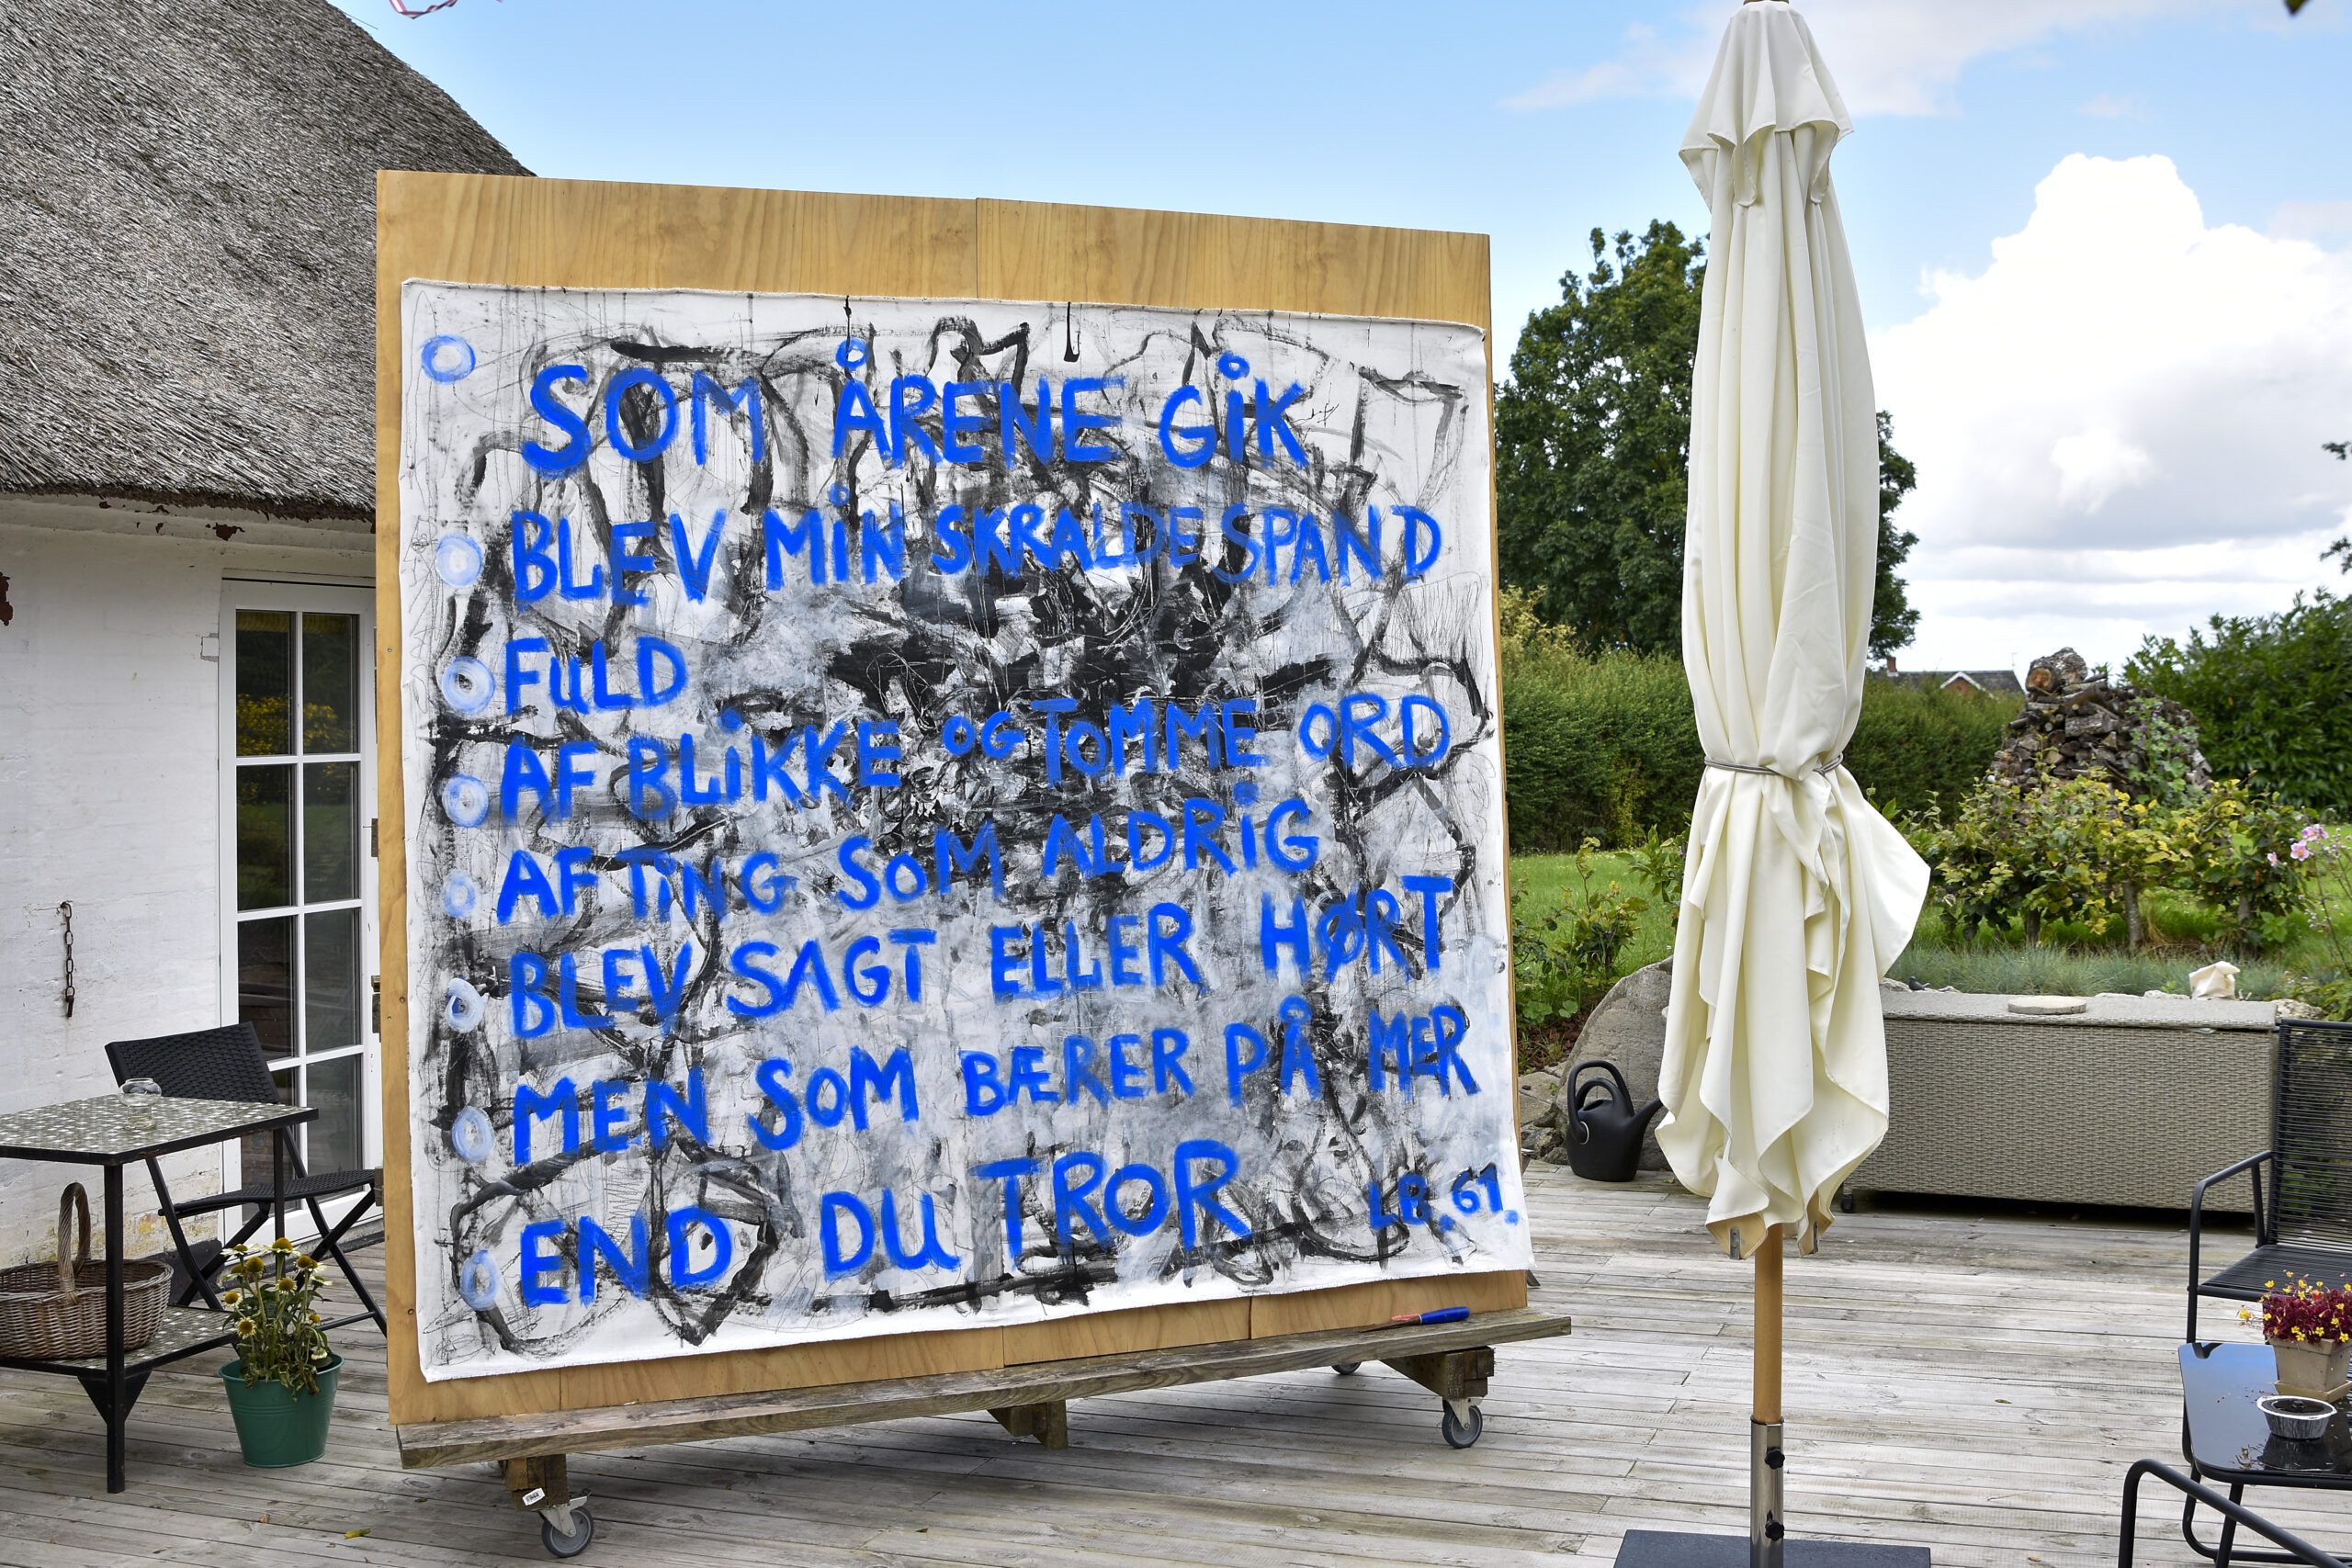 SOM ÅRENE GIK
BLEV MIN SKRALDESPAND
FULD
AF BLIKKE OG TOMME ORD
AF TING SOM ALDRIG
BLEV SAGT ELLER HØRT
MEN SOM BÆRER PÅ MER
END DU TROR
LB.61.